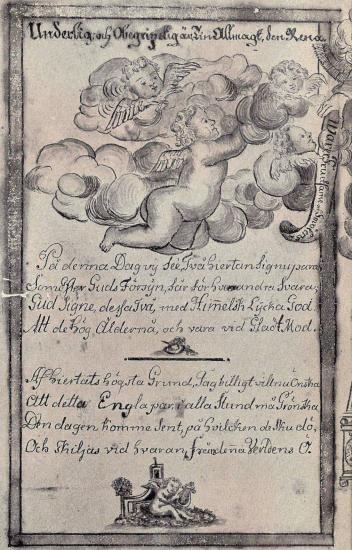 Underlig och Obegripelig är Din Allmagt, den Rena
På denna Dag vy see, Två hiertan
Som efter Guds Försyn, här för hvarandra Svara;
Gud Signe, dessa Två, med Himelsk Lycka God.
Att de hög Ålderna, och vara vid Gladt Mod.
Af hiertats högsta Grund, Jag billigt vill nu Önska
Att detta Engla par i alla stund må Grönska
Den dagen komme Sent, på hvilcken de Sku dö,
Och Skiljas vid hvaran, från denna Verldens Ö.